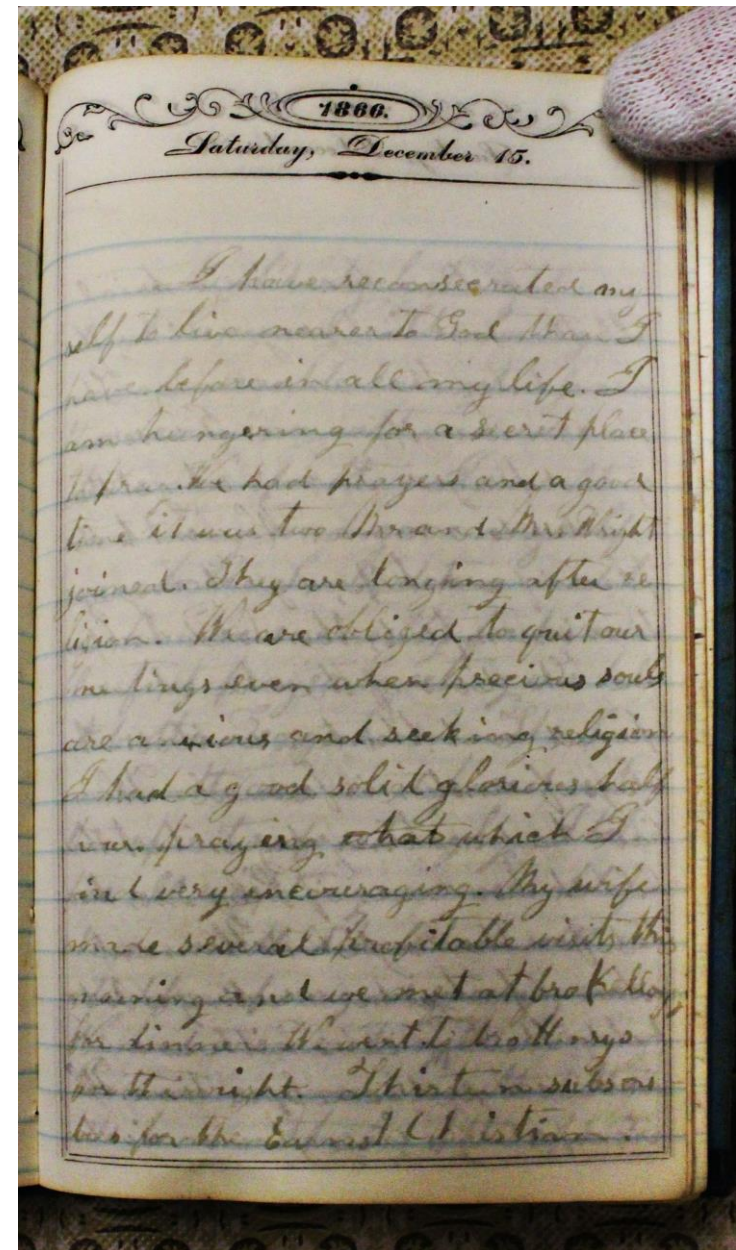 1866.
Saturday, December 15.
I have reconsecrated my
self to live nearer to God than I
have before in all my life. I
am hungering for a secret place
to pray. We had prayers and a good
time it was two Mr and Mrs Wright
joined. They are longing after re
ligion. We are obliged to quit our
meetings even when precious souls
are anxious and seeking religion
I had a good solid glorious half
hour praying what which I
find very encouraging. My wife
made several profitable visits this
morning and we met at bro
for dinner. We went to bro
for the night. Thirteen subscri
bers for the Earnest Christian.